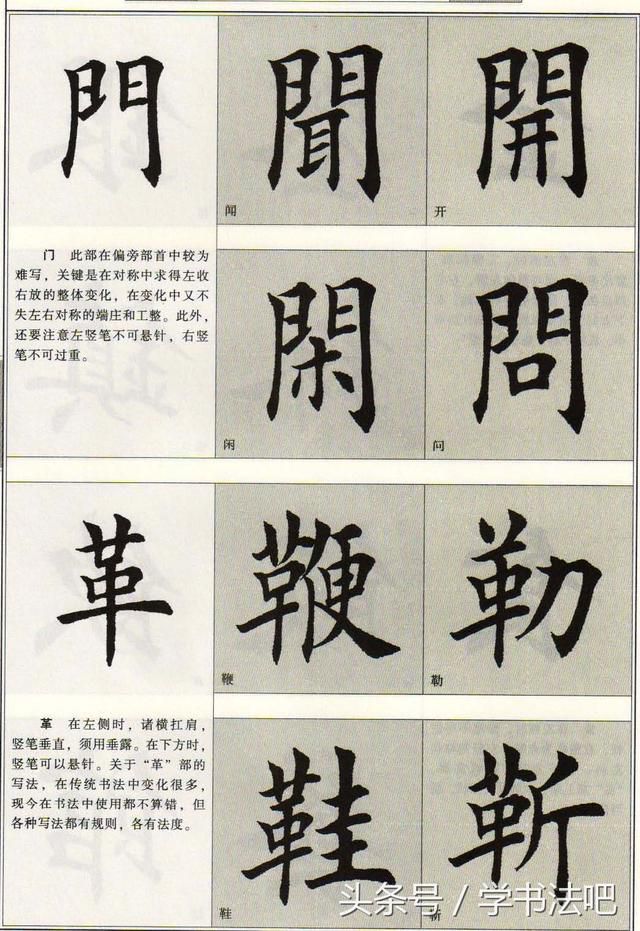 門 聞 開
闻 开
门 此部在偏旁部首中较为
难写，关键是在对称中求得左收
右放的整体变化，在变化中又不
失左右对称的端庄和工整。此外，
还要注意左竖笔不可悬针，右竖
笔不可过重。
閑 問
闲 问
革 鞭 勒
鞭 勒
革 在左侧时，诸横扛肩，
竖笔垂直，须用垂露。在下方时，
竖笔可以悬针。关于“革”部的
写法，在传统书法中变化很多，
现今在书法中使用都不算错，但
各种写法都有规则，各有法度。
鞋 靳
鞋 靳
头条号 / 学书法吧